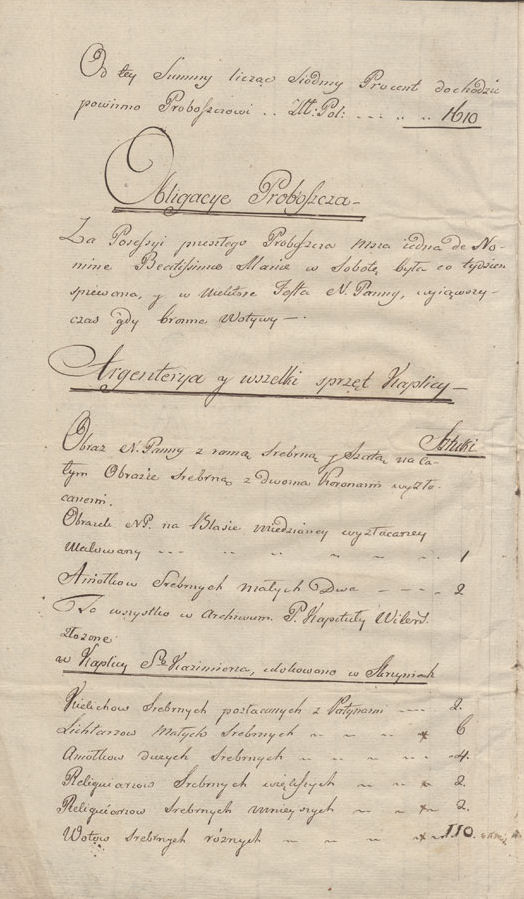 Od tey Summy licząc Siodmy Procent dochodzić
powinno Proboszczowi .. Złł: Pol: --- .. .. 1610
Obligacye Proboszcza
Za Possessyi przeszłego Proboszcza Msza iedna de No-
mine Beatissimæ Mariæ w Sobotę była co tydzień
spiewana, y w Festa N. Panny, wyiąwszy
czas gdy bronne Wotywy —
Argenterya y wszelki sprzęt Kaplicy —
Sztuki
Obraz N. Panny z ramą Srebrną y Szatą na ca-
łym Obrazie Srebrną z Dwoma Koronami wyzło-
canemi.
Obrazek NP. na Blasie miedzianey wyzłacaney
Malowany --- .. .. 1
Aniołkow Srebrnych małych Dwa - - - - 2
To wszystko w Archiwum P. Kapituły Wileń.
złożone
w Kaplicy S. Kazimierza, w Skrzyniach
Kielichow Srebrnych pozłacanych z Patynami --- 2.
Lichtarzow Małych Srebrnych 6
Aniołkow dużych Srebrnych 4.
Reliquiarzow Srebrnych większych 2.
Reliquiarzow Srebrnych mnieyszych 2.
Wotow Srebrnych różnych 110.